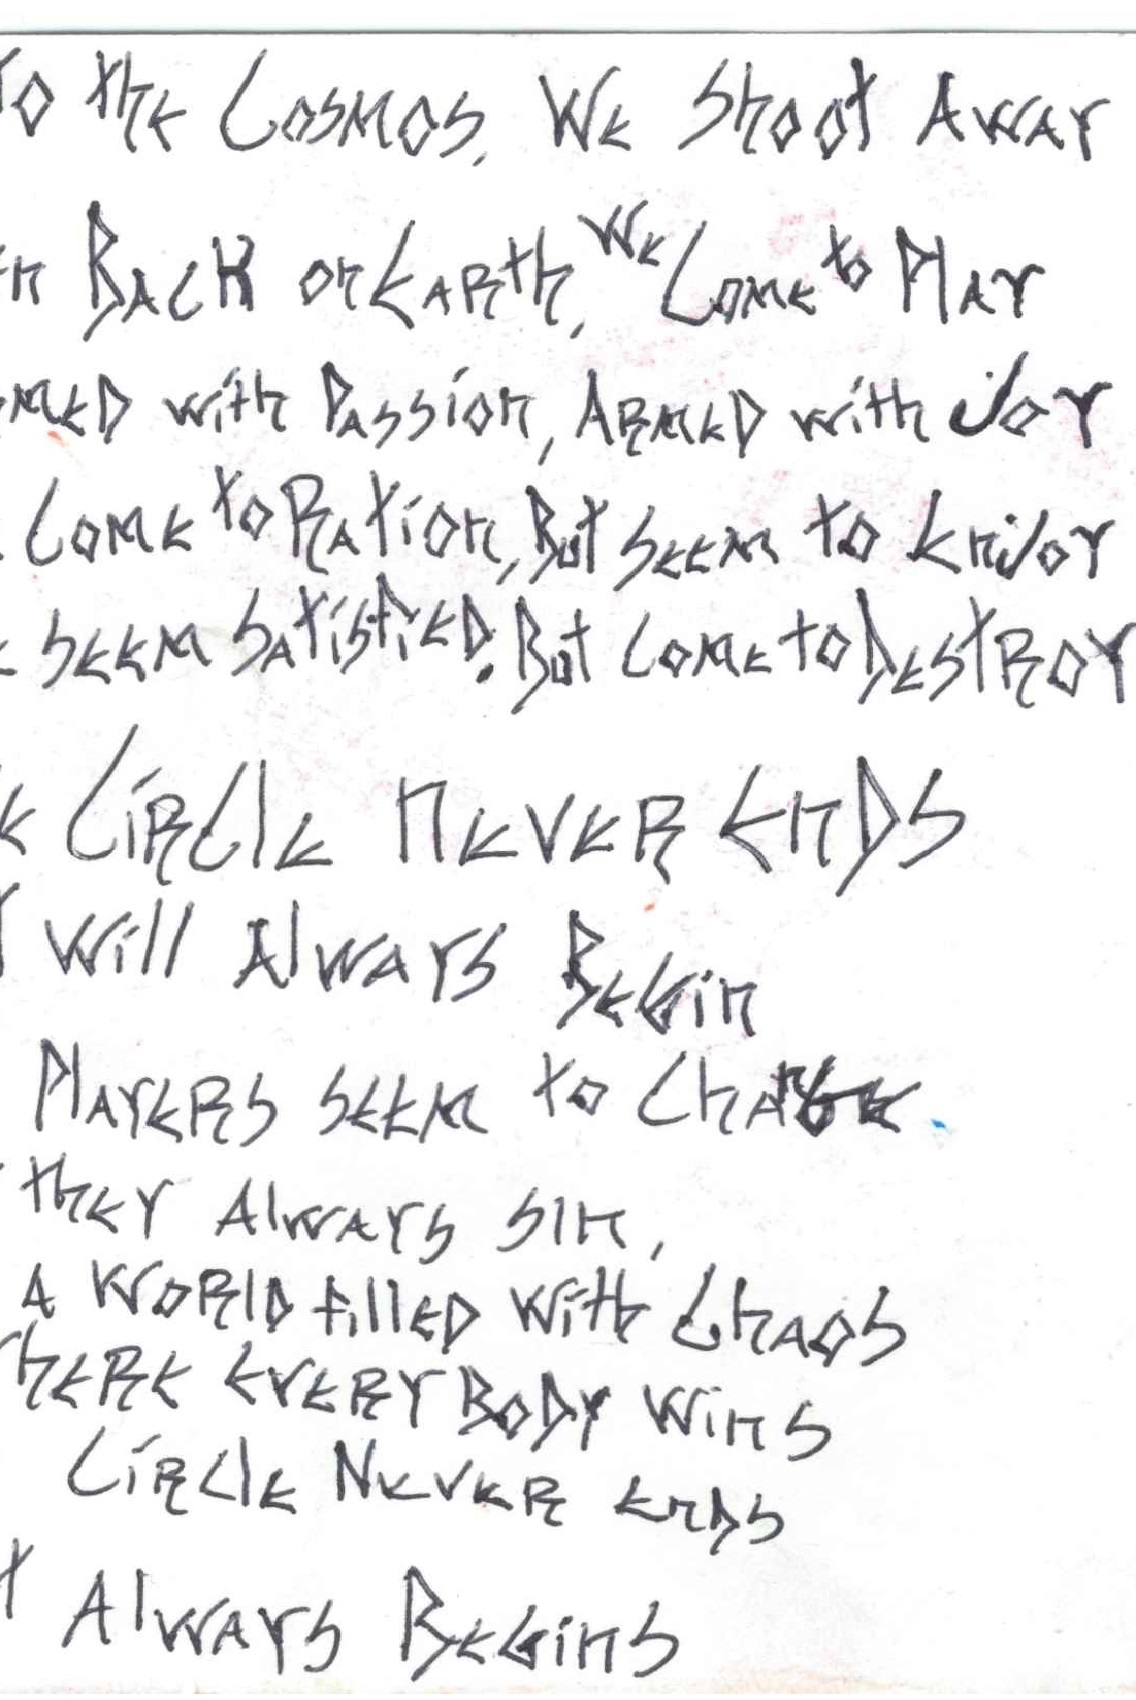 To the Cosmos, We Shoot Away
Back on Earth, We Come to Play
with Passion, Armed with Joy
Come to Ration, But seem to Enjoy
seem Satisfied. But come to Destroy
Circle never Ends
will Always Begin
Players seem to Change
they Always sin,
A World filled with Chaos
everybody wins
Circle Never ends
Always Begins